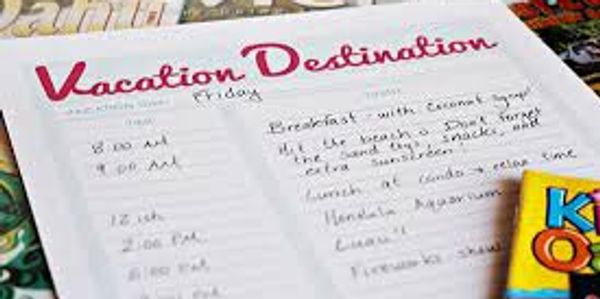 Vacation Destination
VACATION DAY:
Friday
TIME
8:00 AM Breakfast - with Coconut Syrup!
9:00 AM Hit the beach :) Don't forget
the sand toys, snacks, and
extra sunscreen!
12 ish Lunch at condo → relax time
2:00 PM Honolulu Aquarium
6:00 PM Luau!
PM Fireworks show
K
O